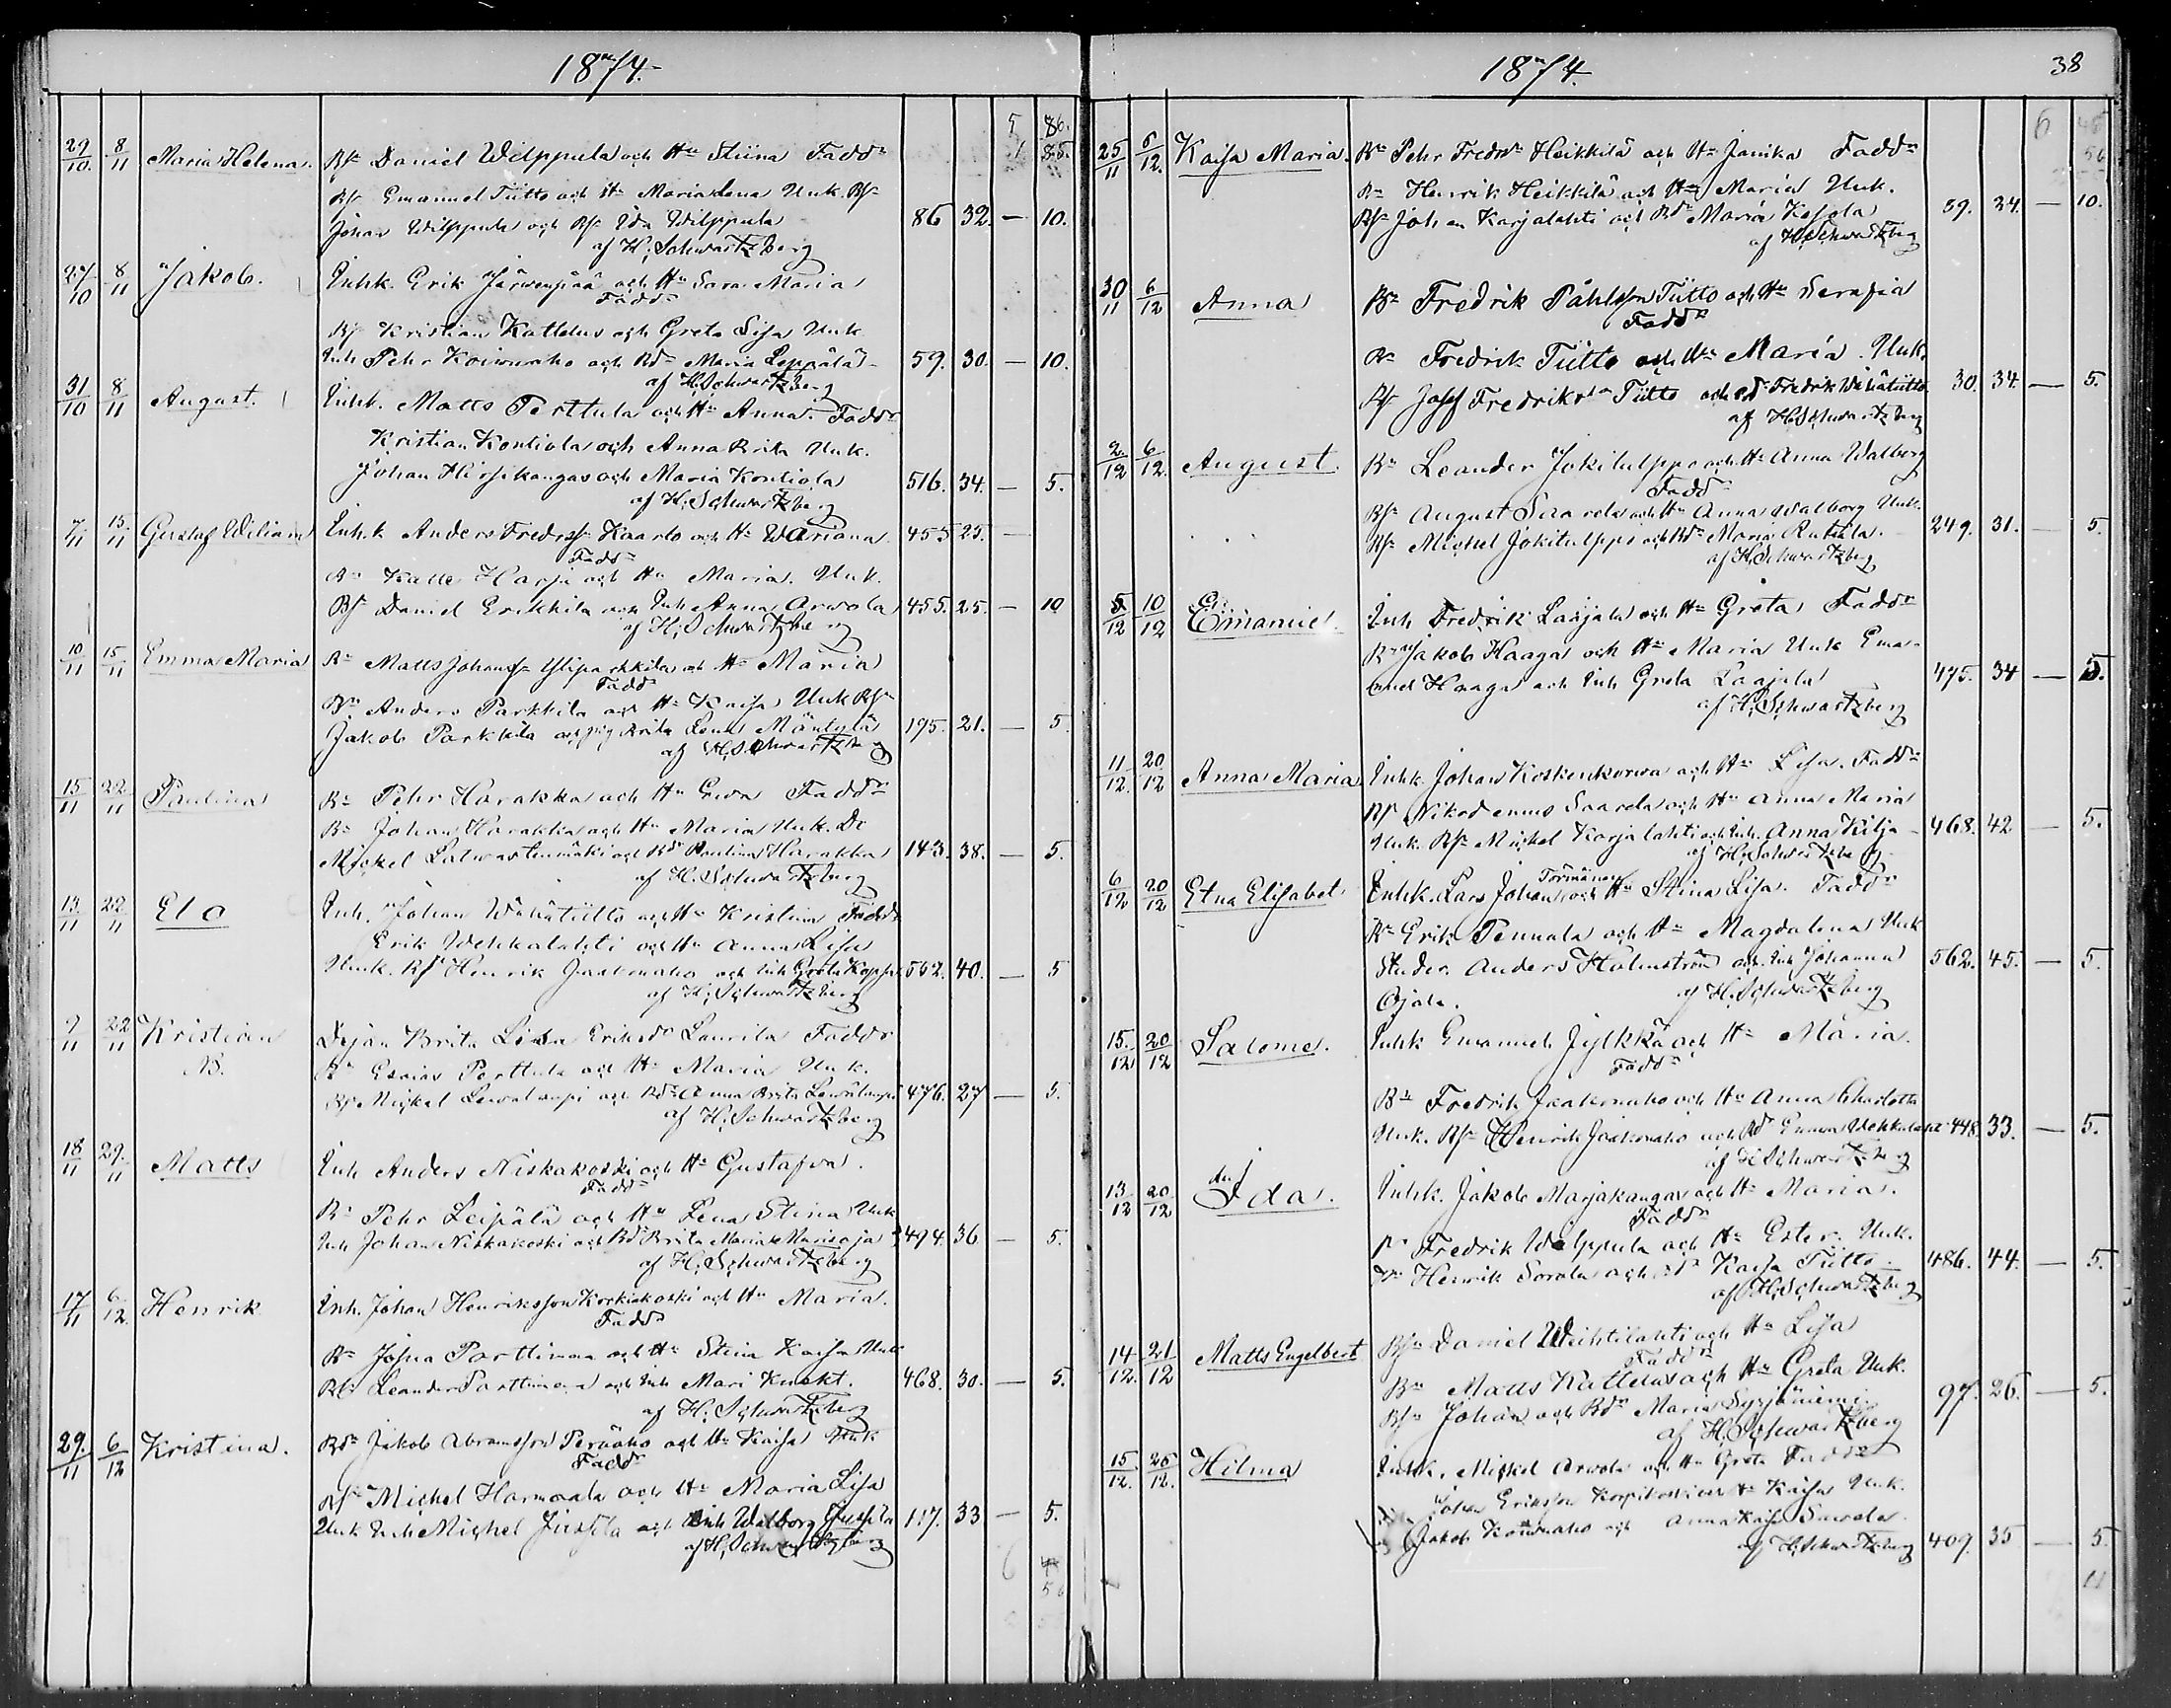 1874.
5 86.
1 85.
29/10. 8/11 Maria Helena. Bs Daniel Wilppula och Hu Stiina Fadd
Bs Emanuel Tiitto och Hu Maria Lena Unk. Bs
Johan Wilppula och Bd Ida Wilppula 86 32. — 10.
af H. Schwartzberg
27/10 8/11 Jakob. Inhk. Erik Järwenpää och Hu Sara Maria
Fadd
Bs Kristian Kattelus och Greta Lisa Unk
Inh Pehr Koiwuaho och Bd Maria Leppälä 59. 30. — 10.
af H. Schwartzberg
31/10 8/11 August. Inhk. Matts Perttula och Hu Anna. Fadd
Kristian Kontiola och Anna Brita Unk.
Johan Hirsikangas och Maria Kontiola 516. 34. — 5.
af H. Schwartzberg
7/11 15/11 Gustaf Wiliam Inhk Anders Fredrs Kaarto och Hu Mariana 455 25. —
Fadd
Bn Kalle Harju och Hu Maria. Unk.
Bs Daniel Erikkila och Inh Anna Arwola 455. 25. — 10
af H. Schwartzberg
10/11 15/11 Emma Maria Bn Matts Johans Yliparkkila och Hu Maria
Fadd
Bn Anders Parkkila och Hu Kaisa Unk Bs
Jakob Parkkila och pig Brita Lena Mäntylä 195. 21. — 5.
af H. Schwartzberg
15/11 22/11 Paulina Bn Pehr Harakka och Hu Ewa Fadd
Bn Johan Harakka och Hu Maria Unk. Dr
Mickel Latwastenmäki och Bd Paulina Harakka 143. 38. — 5.
af H. Schwartzberg
13/11 22/11 Ela Inh. Johan Wähätiitto och Hu Kristina Fadd
Erik Wehkalahti och Hu Anna Lisa
Unk. Bs Henrik Jaakonaho och Inh Greta 552. 40. — 5
af H. Schwartzberg
9/11 22/11 Kristian Dejan Brita Lisa Eriksd Laurila Fadd
N. Bn Esaias Perttula och Hu Maria Unk.
Bs Mickel Lewalampi och Bd Anna Brita Lewälampi 476. 27 — 5.
af H. Schwartzberg
18/11 29./11 Matts Inh Anders Niskakoski och Hu Gustafva.
Fadd
Bn Pehr Leipälä och Hu Lena Stina Unk
Inh Johan Niskakoski och Bd Brita Maria Marisaja 494. 36 — 5.
af H. Schwartzberg
17/11 6/12 Henrik Inh. Johan Henriksson Korkiakoski och Hu Maria.
Fadd
Bn Josua Parttimaa och Hu Stina Kaisa Unk
Bs Leander Parttimaa och Inh Mari Knekt. 468. 30. — 5.
af H. Schwartzberg
29./11 6/12 Kristina. Bd Jakob Abramsson Peräaho och Hu Kaisa Unk
Fadd
Bs Michel Harmaala och Hu Maria Lisa
Unk Inh Michel Jussila och Inh Walborg Jussila 117. 33 — 5.
af H. Schwartzberg
6
56
1874. 38
6 45
56
25/11 6/12. Kaisa Maria. Bn Pehr Fredrs Heikkilä och Hu Janika Fadd
Bn Henrik Heikkilä och Hu Maria Unk.
Bs Johan Karjalahti och Bd Maria Kesola 39. 34. — 10.
af H. Schwartzberg
30/11 6/12 Anna Bn Fredrik Påhlsson Tiitto och Hu Serafia
Fadd
Bn Fredrik Tiitto och Hu Maria. Unk.
Bs Josef Fredriks Tiitto och Bd Fredrik Wähätiitto 30. 34. — 5.
af H. Schwartzberg
2./12 6/12. August. Bn Leander Jokitulppo och Hu Anna Walborg
Fadd
Bs August Saarela och Hu Anna Walborg Unk.
Bs Michel Jokitulppo och Bd Maria Rutula. 249. 31. — 5.
af H. Schwartzberg
5/12 10/12 Emanuel. Inh Fredrik Laajala och Hu Greta Fadd
Bn Jakob Haaga och Hu Maria Unk Ema-
nuel Haaga och Inh Greta Laajala 475. 34 — 5.
af H. Schwartzberg
11/12. 20/12 Anna Maria Inhk. Johan Koskenkorwa och Hu Lisa. Fadd
Bs Nikodemus Saarela och Hu Anna Maria
Unk. Bs Mickel Karjalahti och Inh. Anna Kilja 468. 42 — 5.
af H. Schwartzberg
6/12 20/12 Etna Elisabet Inhk. Lars Johan Törmänen och Hu Stina Lisa. Fadd
Bn Erik Pennala och Hu Magdalena Unk
Studer. Anders Holmström och Inh Johanna 562. 45. — 5.
Ojala. af H. Schwartzberg
15./12 20/12 Salome. Inhk Emanuel Jylkkä och Hu Maria.
Fadd
Bn Fredrik Jaakonaho och Hu Anna Charlotta
Unk. Bs Henrik Jaakonaho och Bd Emma Wehkalahti 448. 33. — 5.
af H. Schwartzberg
13/12 20/12 Ida. Inhk. Jakob Marjakangas och Hu Maria.
Fadd
Bn Fredrik Wilppula och Hu Ester. Unk.
Henrik Sorola och Bd Kaisa Tiitto. 486. 44. — 5.
af H. Schwartzberg
14/12. 21/12 Matts Engelbert Bs Daniel Weihtilahti och Hu Lisa
Fadd
Bn Matts Kattelus och Hu Greta Unk.
Bs Johan och Bd Maria Syrjäniemi. 97. 26. — 5.
af H. Schwartzberg
15/12. 26/12. Hilma Inhk. Mickel Arwola och Hu Greta Fadd
Johan Eriksson Korpikoski och Hu Kaisa Unk.
Jakob Koiwuaho och Anna Kaisa Saarela.
af H. Schwartzberg 409. 35 — 5.